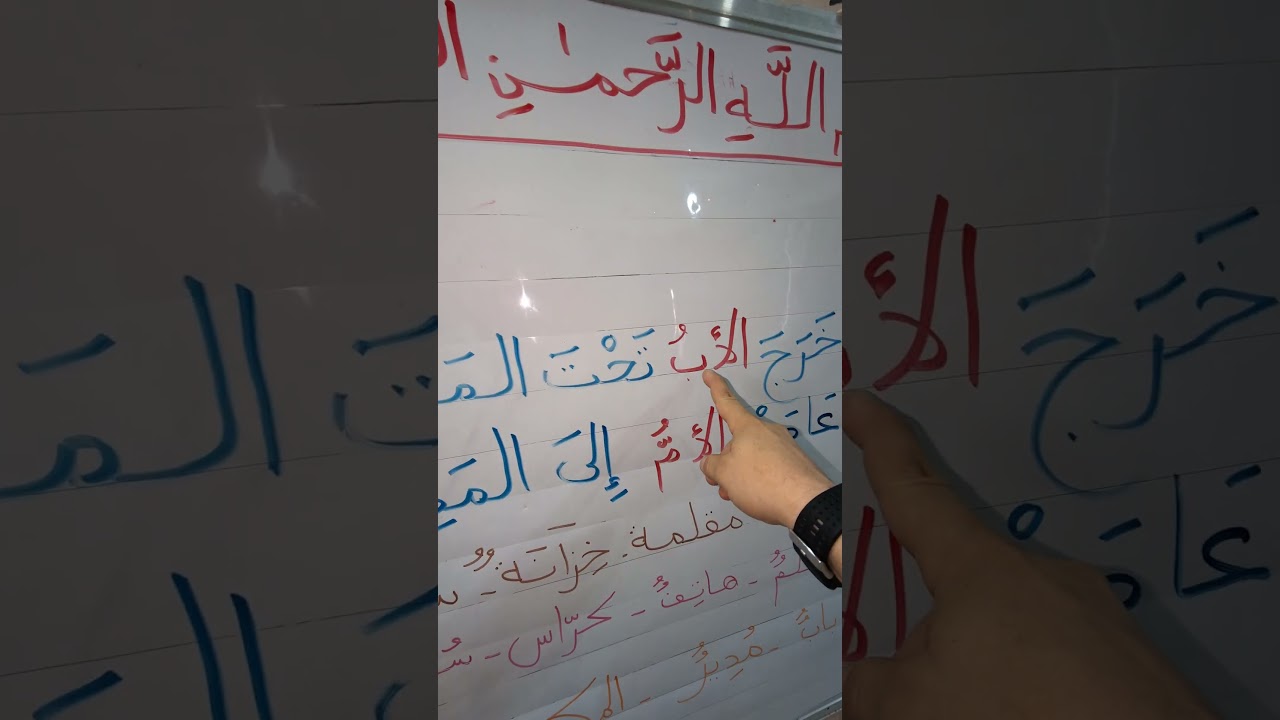 اللَّهِ الرَّحمٰنِ
خَرَجَ الأَبُ تَحْتَ المَ
عَادَتْ الأُمُّ إِلىَ المَ
مقلمة - خِزَانَة
هاتِفٌ - كرّاس
بابٌ - مُدِيرٌ - المك